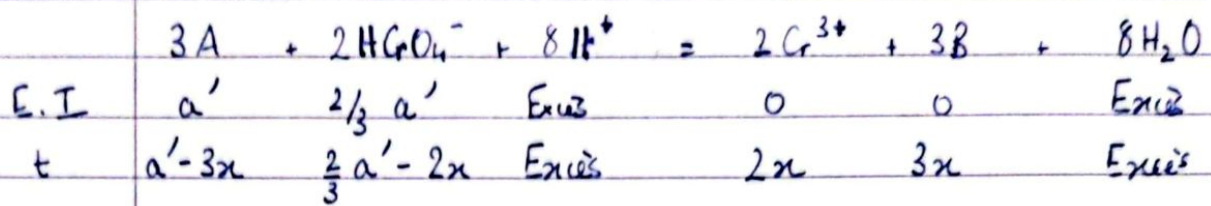 3A + 2HCrO₄⁻ + 8H⁺ = 2Cr³⁺ + 3B + 8H₂O
E.I a' 2/3 a' Excès 0 0 Excès
t a'-3x 2/3 a' - 2x Excès 2x 3x Excès